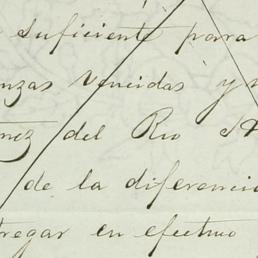 suficiente para
nzas vencidas y
nez del Rio
de la diferenci
tregar en efectivo